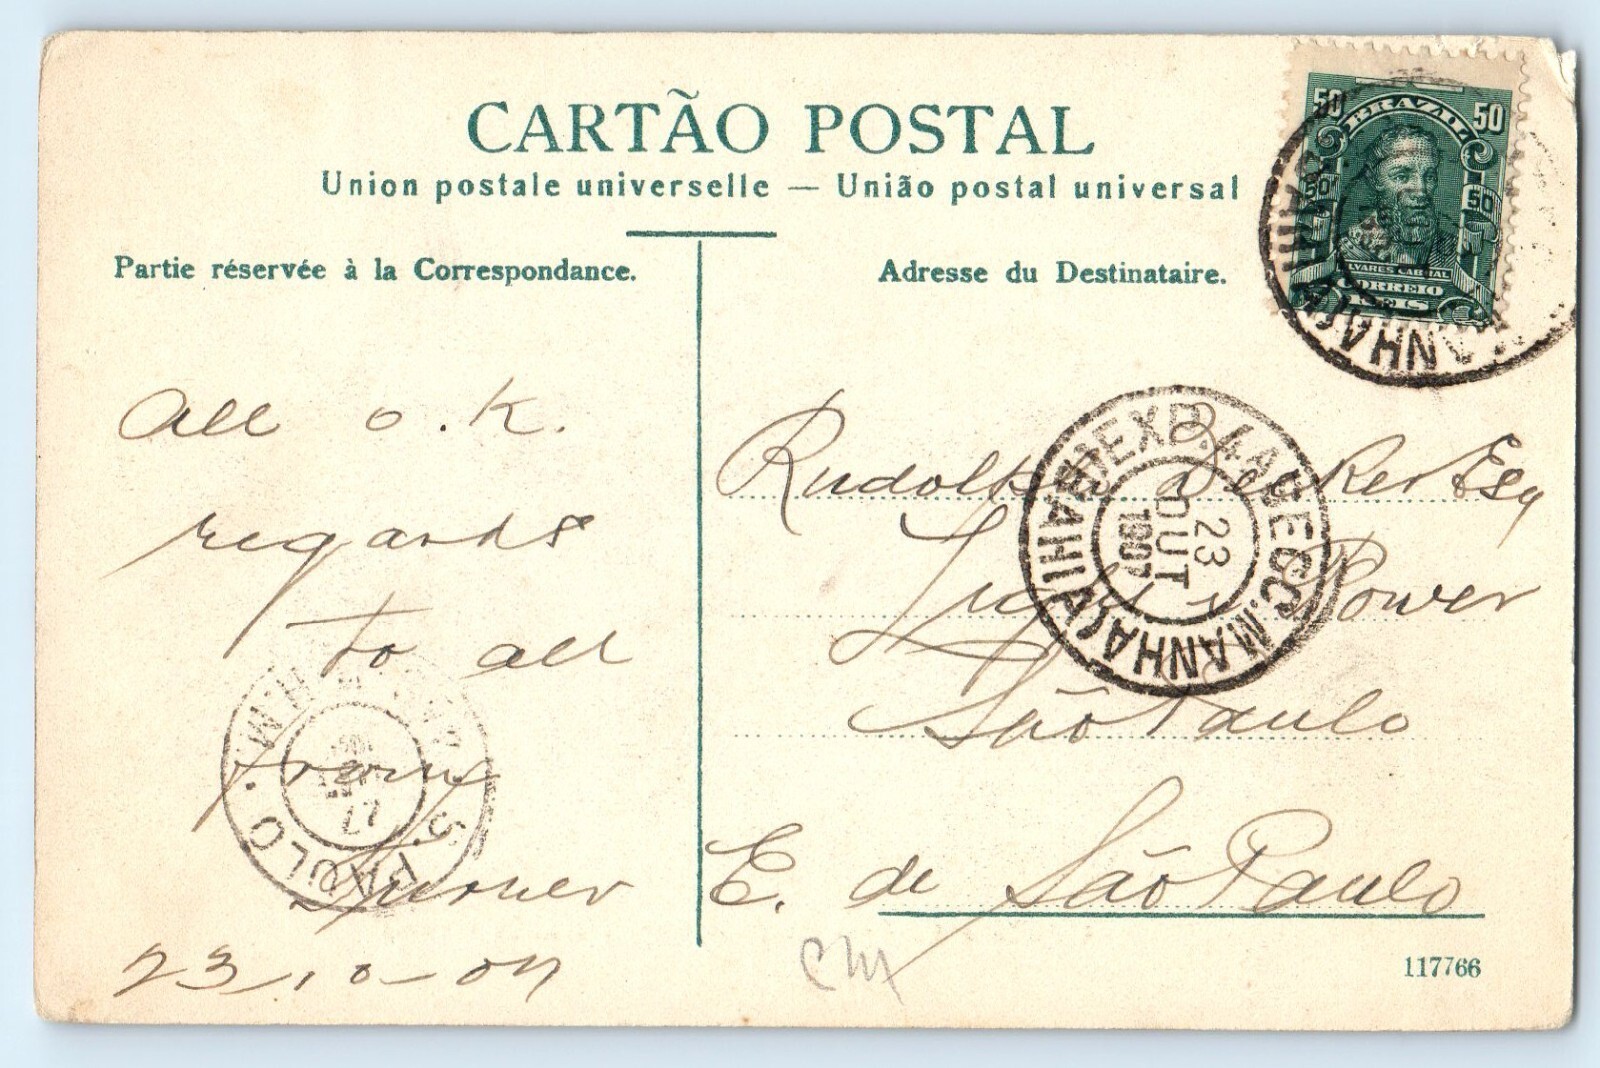 CARTÃO POSTAL
Union postale universelle — União postal universal
Partie réservée à la Correspondance.
Adresse du Destinataire.
50 BRAZIL 50
50 50
ALVARES CABRAL
CORREIO
REIS
MANHA (BAHIA)
All o.K.
regards
to all
from
Turner
23-10-07
Rudolph Decker Esq
Light & Power
São Paulo
E. de São Paulo
EXP. 4A SECC. MANHA (BAHIA)
23
OUT
1907
S. PAULO
27
CM
117766